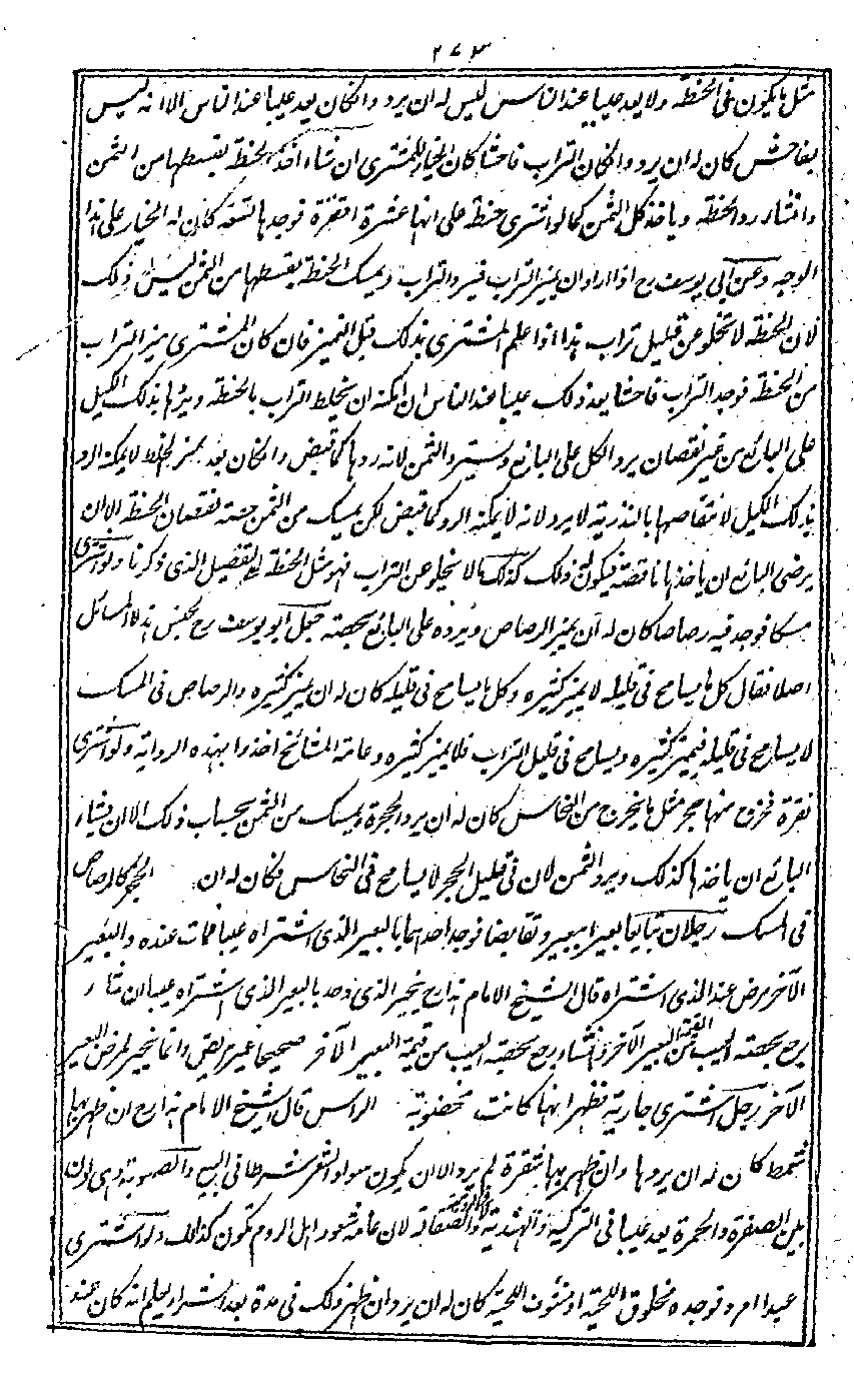 ٢٧٣
مثل ما يكون فى الحنطة ولا يعد عيبا عند الناس ليس له ان يرد وان كان يعد عيبا عند الناس الا انه ليس
بفاحش كان له ان يرد وان كان التراب فاحشا كان الخيار للمشترى ان شاء اخذ الحنطة بقسطها من الثمن
وان شاء رد الحنطة وياخذ كل الثمن كما لو اشترى حنطة على انها عشرة اقفزة فوجدها تسعة كان له الخيار على هذا
الوجه وعن ابى يوسف رح اذا اراد ان يميز التراب فيرد التراب ويمسك الحنطة بقسطها من الثمن ليس له ذلك
لان الحنطة لا تخلو عن قليل تراب هذا اذا علم المشترى بذلك قبل التميز فان كان المشترى ميز التراب
من الحنطة فوجد التراب فاحشا يعد ذلك عيبا عند الناس ان امكنه ان يخلط التراب بالحنطة ويردها بذلك الكيل
على البائع من غير نقصان يرد الكل على البائع ويسترد الثمن لانه ردها كما قبض وان كان بعد الخلط لا يمكنه الرد
بذلك الكيل لانتقاصها بالتذرية لا يرد لانه لا يمكنه الرد كما قبض لكن يمسك من الثمن حصته نقصان الحنطة الا ان
يرضى البائع ان ياخذها ناقصة فيكون له ذلك كذلك ما لا يخلو عن التراب فهو مثل الحنطة على التفصيل الذى ذكرنا ولو اشترى
مسكا فوجد فيه رصاصا كان له ان يميز الرصاص ويرده على البائع بحصته جعل ابو يوسف رح لجنس هذه المسائل
اصلا فقال كل ما يسامح فى قليله لا يميز كثيره وكل ما لا يسامح فى قليله كان له ان يميز كثيره والرصاص فى المسك
لا يسامح فى قليله فيميز كثيره ويسامح فى قليل التراب فلا يميز كثيره وعامة المشائخ اخذوا بهذه الرواية ولو اشترى
نقرة فخرج منها حجر مثل ما يخرج من النحاس كان له ان يرد الحجرة ويمسك من الثمن بحساب ذلك الا ان يشاء
البائع ان ياخذها كذلك ويرد الثمن لان فى قليل الحجر لا يسامح فى النحاس فكان له ان الحجر كالرصاص
فى المسك رجلان تبايعا بعيرا ببعير وتقابضا فوجد احدهما بالبعير الذى اشتراه عيبا فمات عنده والبعير
الآخر مرض عند الذى اشتراه قال الشيخ الامام هذا رح يخير الذى وجد بالبعير الذى اشتراه عيبا ان شاء
رجع بحصته العيب من البعير الآخر وان شاء رجع بحصته العيب من قيمة البعير الآخر صحيحا غير مريض وانما يخير لمرض البعير
الآخر رجل اشترى جارية فظهر انها كانت مخضوبة الراس قال الشيخ الامام هذا رح ان ظهر بها
شمط كان له ان يردها وان ظهر بها شقرة لم يرد الا ان يكون سواد الشعر شرطا فى البيع والصهوبة وهى لون
بين الصفرة والحمرة يعد عيبا فى التركية والهندية لان عامة شعور اهل الروم تكون كذلك ولو اشترى
عبدا امرد فوجده محلوق اللحية او منتوف اللحية كان له ان يرد ان ظهر ذلك فى مدة بعد الشراء يعلم انه كان عند